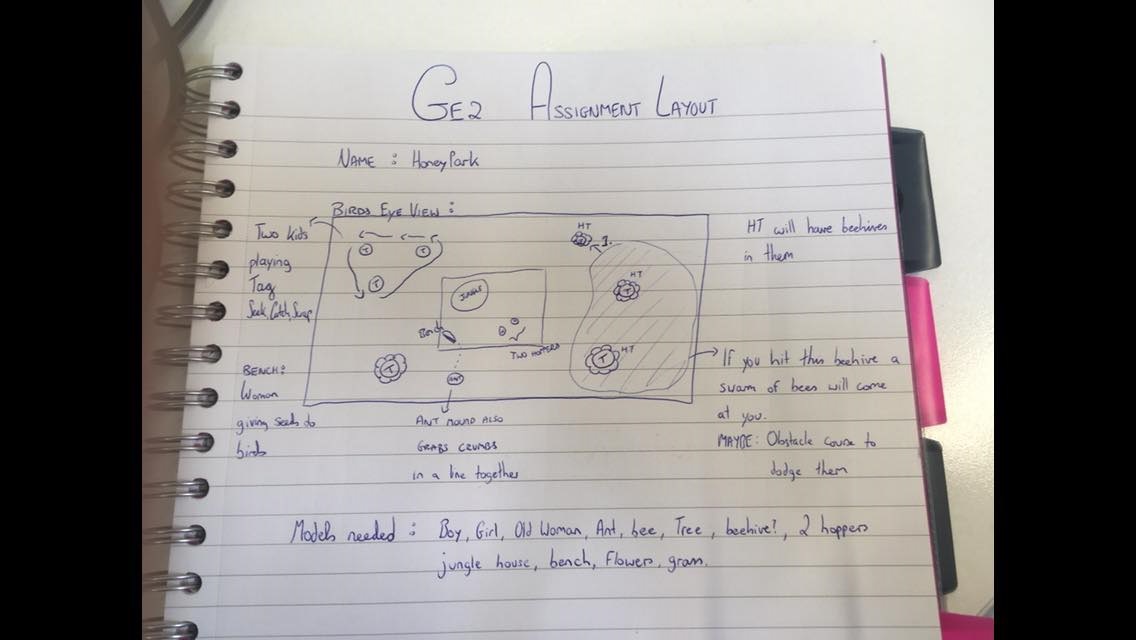 GE2 ASSIGNMENT LAYOUT
NAME : HoneyPark
BIRDS EYE VIEW :
Two kids
playing
Tag
Seek, Catch, Swap
BENCH:
Woman
giving seeds to
birds
T
T
T
HT
1.
JUNGLE
HT
T
Bench
TWO HOPPERS
HT
T
T
ANT
ANT MOUND ALSO
GRABS CRUMBS
in a line together
HT will have beehives
in them
If you hit this beehive a
swarm of bees will come
at you.
MAYBE: Obstacle course to
dodge them
Models needed : Boy, Girl, Old Woman, Ant, bee, Tree, beehive?, 2 hoppers
jungle house, bench, Flowers, grass.